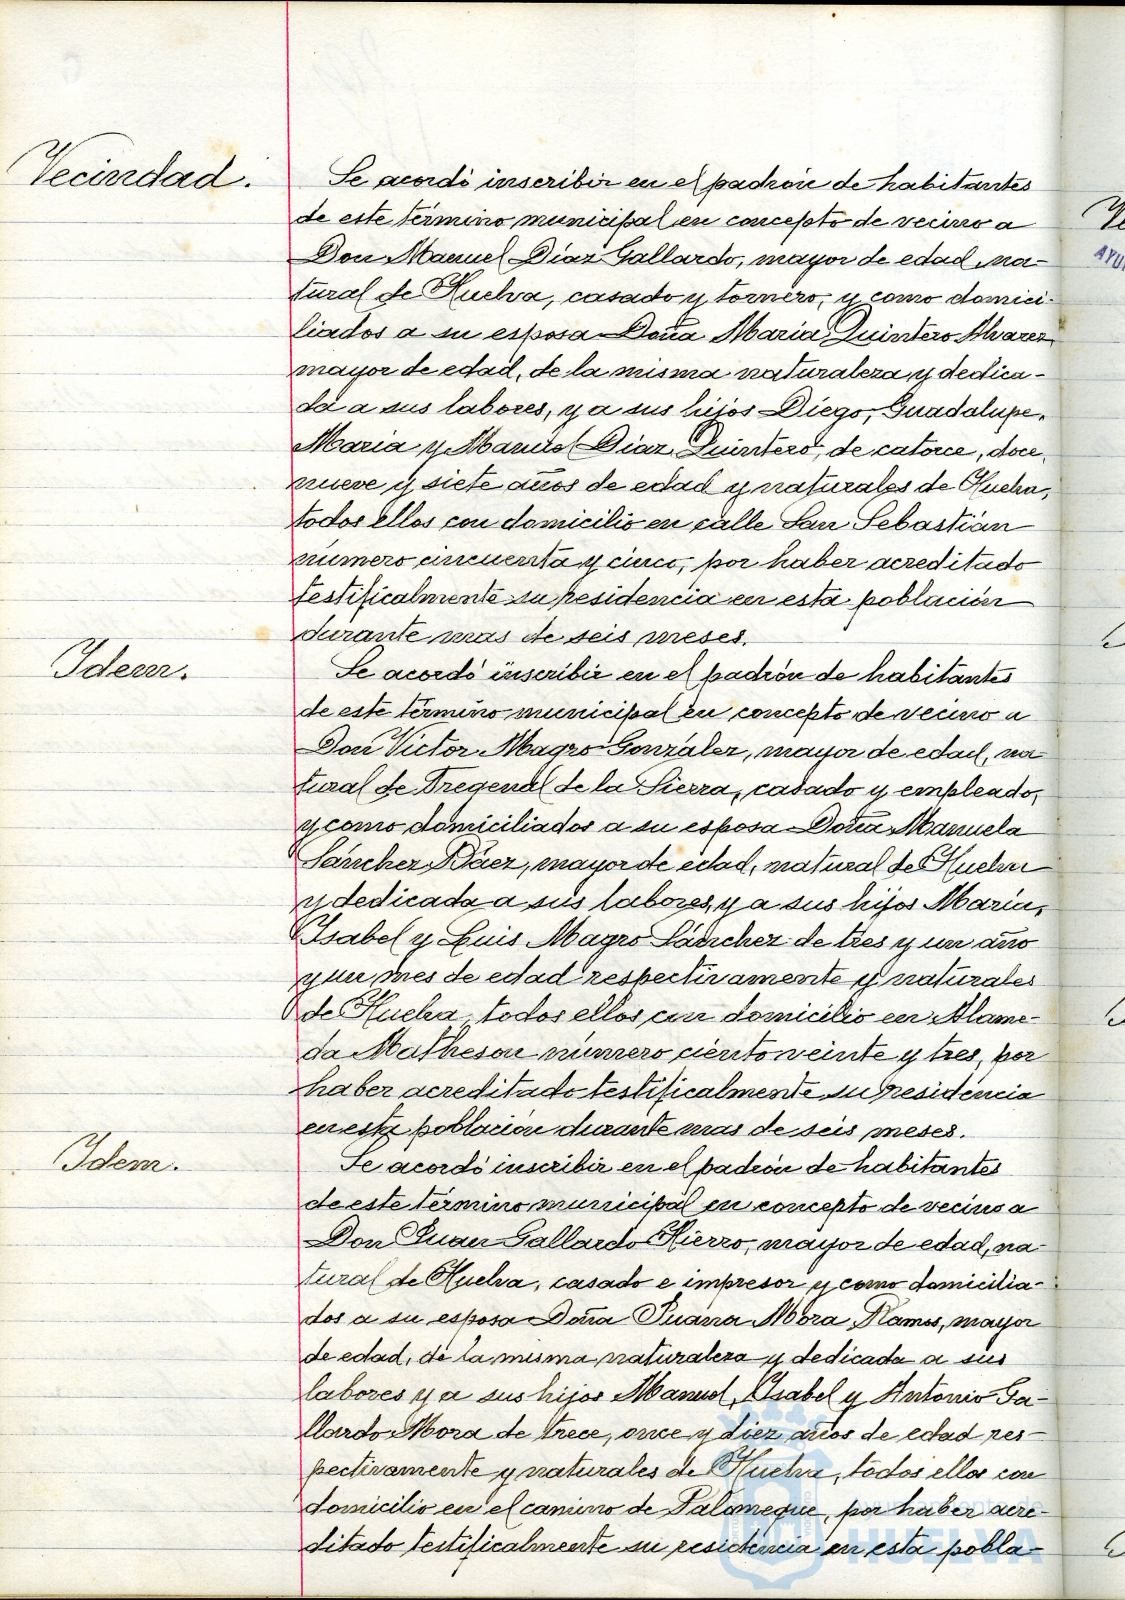 Vecindad.
Se acordó inscribir en el padrón de habitantes
de este término municipal en concepto de vecino a
Don Manuel Díaz Gallardo, mayor de edad, na-
tural de Huelva, casado y tornero, y como domici-
liados a su esposa Doña Maria Quintero Alvarez
mayor de edad, de la misma naturaleza y dedica-
da a sus labores, y a sus hijos Diego, Guadalupe,
Maria y Manuel Diaz Quintero, de catorce, doce,
nueve y siete años de edad y naturales de Huelva,
todos ellos con domicilio en calle San Sebastián
número cincuenta y cinco, por haber acreditado
testificalmente su residencia en esta población
durante mas de seis meses.
Idem.
Se acordó inscribir en el padrón de habitantes
de este término municipal en concepto de vecino a
Don Victor Magro González, mayor de edad, na-
tural de Fregenal de la Sierra, casado y empleado,
y como domiciliados a su esposa Doña Manuela
Sánchez Báez, mayor de edad, natural de Huelva
y dedicada a sus labores, y a sus hijos María,
Isabel y Luis Magro Sánchez de tres y un año
y un mes de edad respectivamente y naturales
de Huelva, todos ellos con domicilio en Alame-
da Matheson número ciento veinte y tres, por
haber acreditado testificalmente su residencia
en esta población durante mas de seis meses.
Idem.
Se acordó inscribir en el padrón de habitantes
de este término municipal en concepto de vecino a
Don Juan Gallardo Hierro, mayor de edad, na-
tural de Huelva, casado e impresor y como domicilia-
dos a su esposa Doña Juana Mora Ramos, mayor
de edad, de la misma naturaleza y dedicada a sus
labores y a sus hijos Manuel, Isabel y Antonio Ga-
llardo Mora de trece, once y diez años de edad res-
pectivamente y naturales de Huelva, todos ellos con
domicilio en el camino de Palomeque, por haber acre-
ditado testificalmente su residencia en esta pobla-
HUELVA